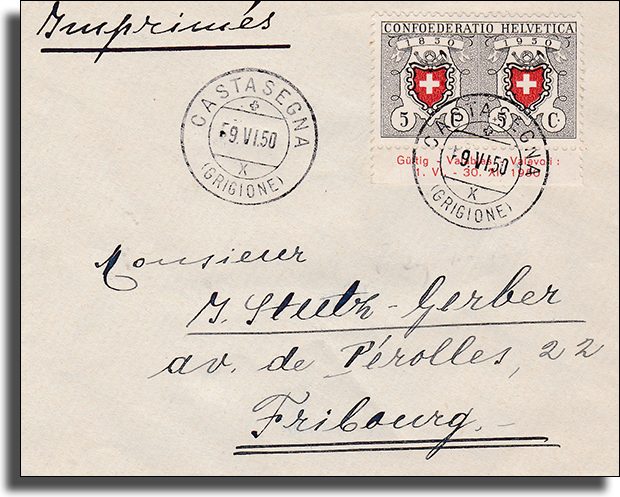 Imprimés
CONFOEDERATIO HELVETICA
1850 1950
5 C. 5 C.
Gültig - Valables - Valevoli:
1. V. - 30. XI. 1950
CASTASEGNA
-9.VI.50
X
(GRIGIONE)
CASTASEGNA
-9.VI.50
X
(GRIGIONE)
Monsieur
J. Stutz-Gerber
av. de Pérolles, 22
Fribourg.-